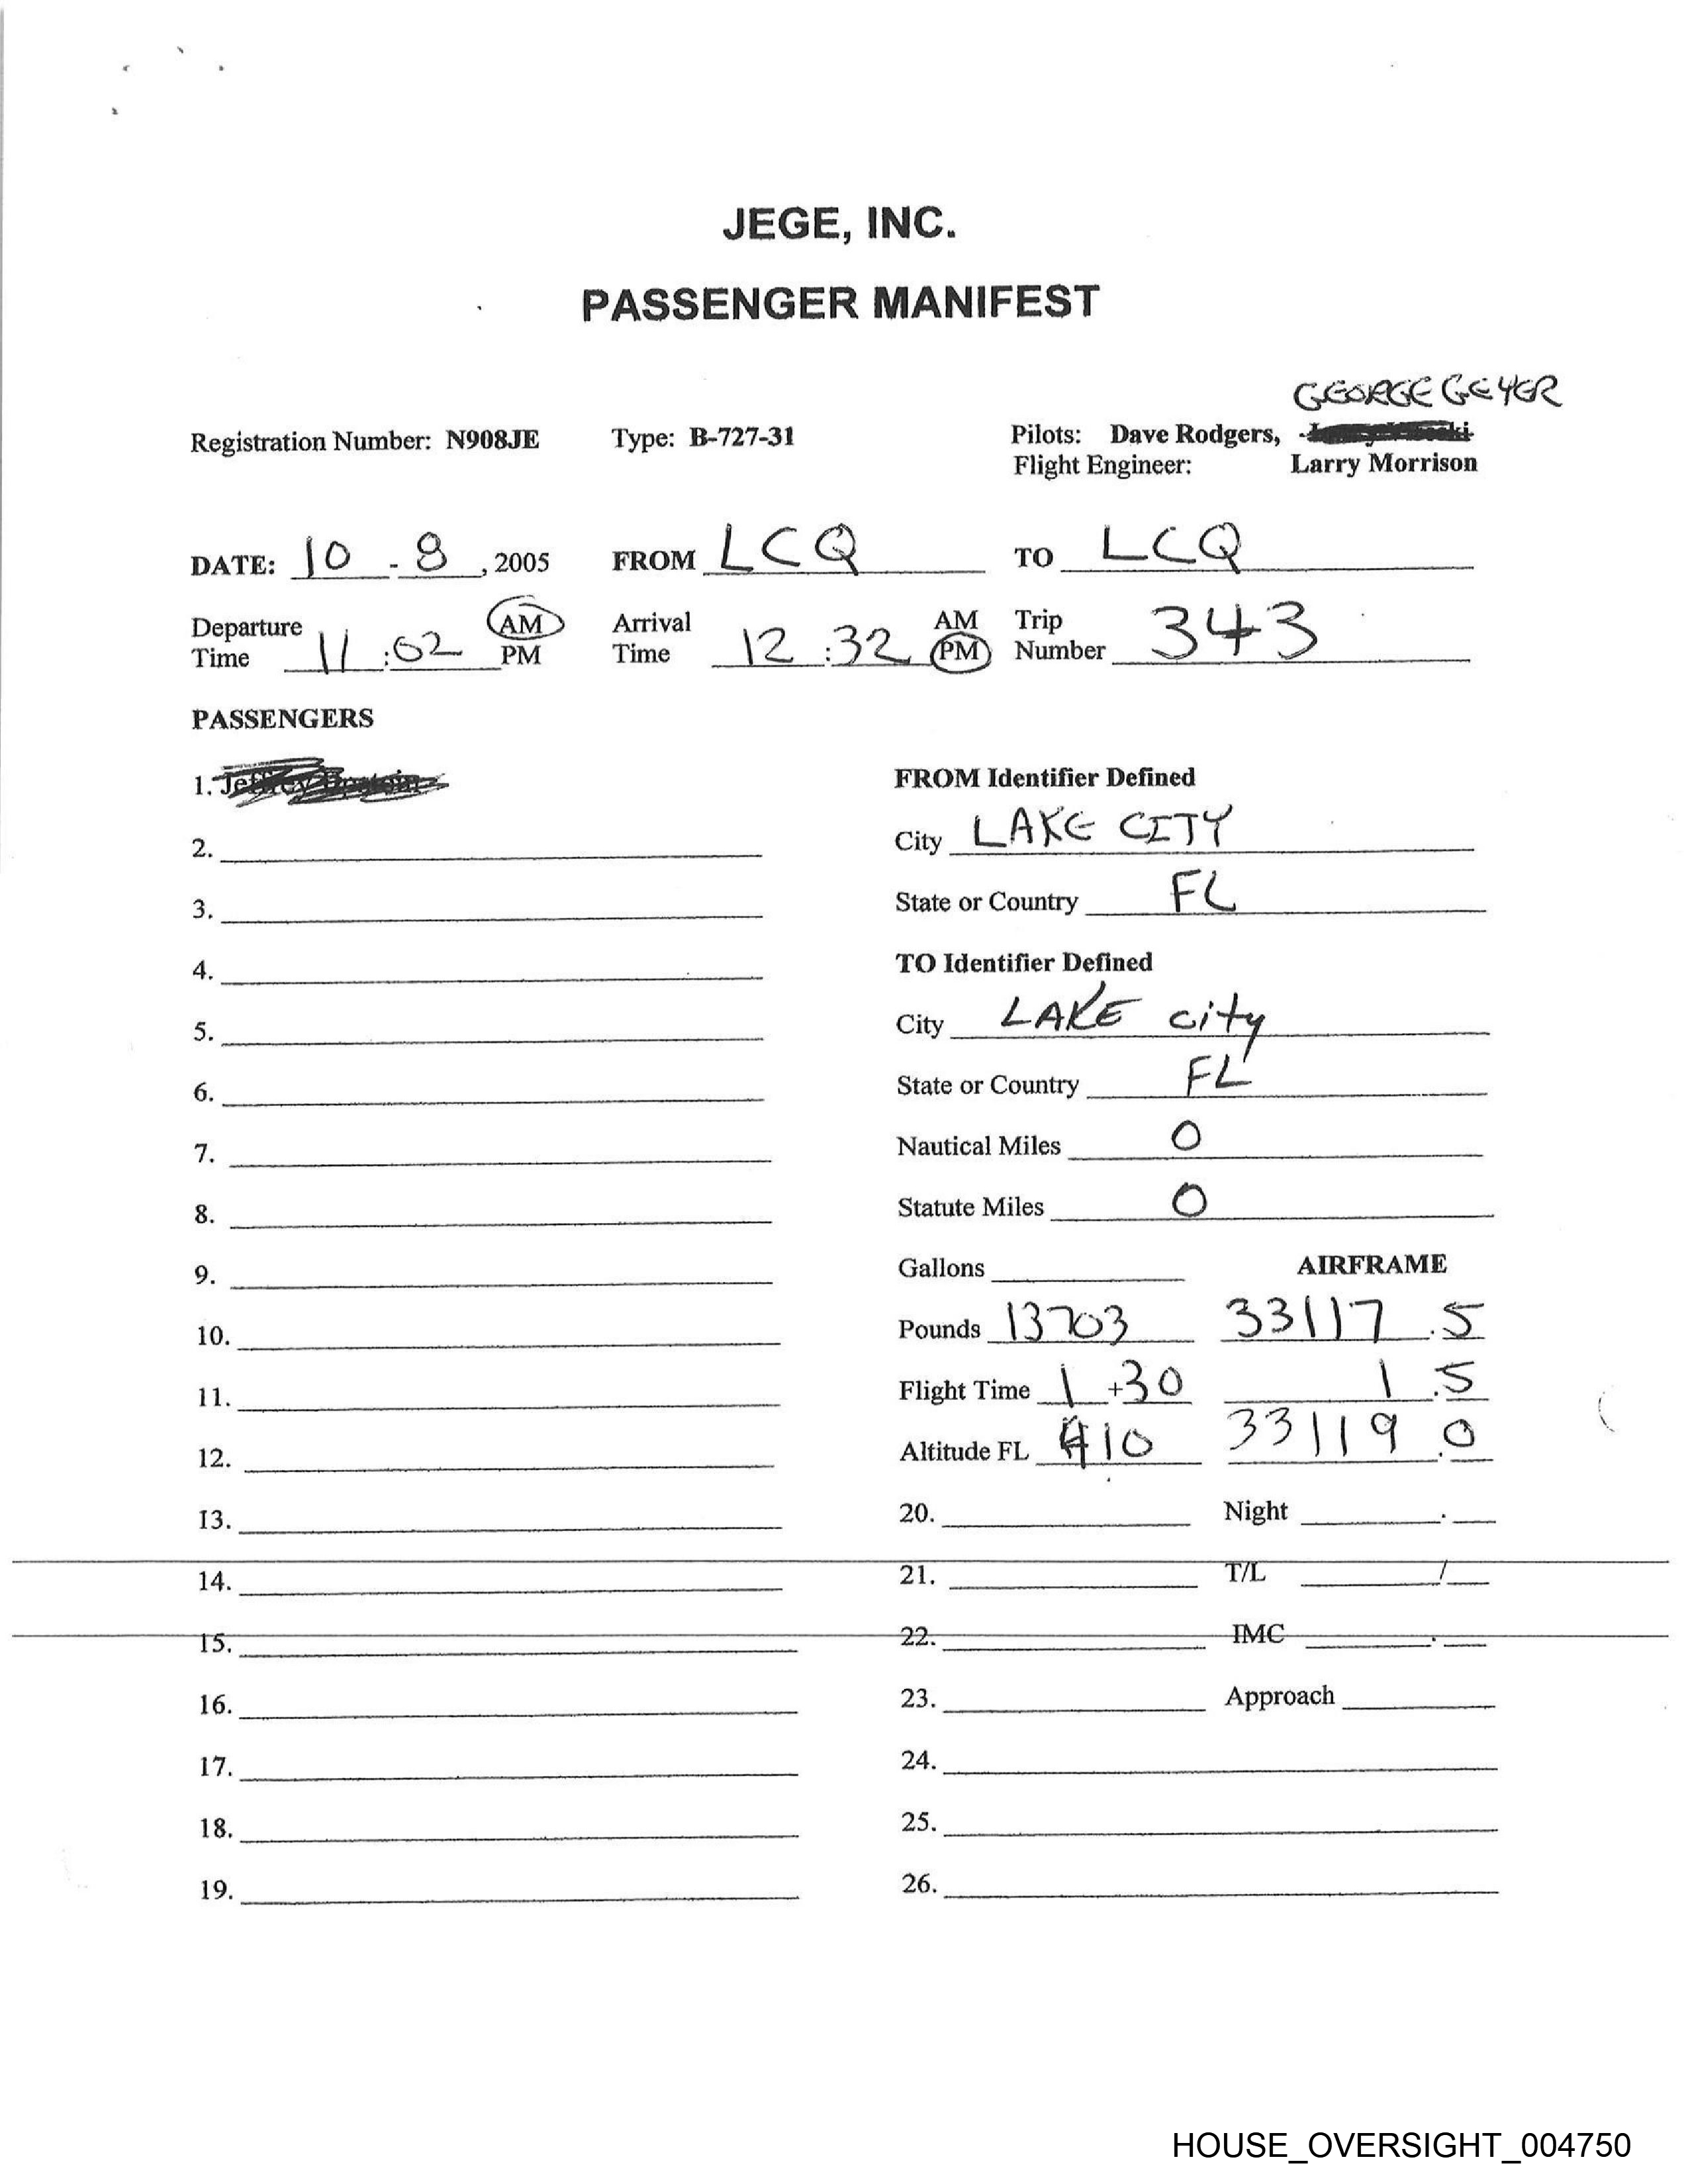 JEGE, INC.
PASSENGER MANIFEST
GEORGE GEYER
Registration Number: N908JE Type: B-727-31 Pilots: Dave Rodgers,
Flight Engineer: Larry Morrison
DATE: 10 - 8, 2005 FROM LCQ TO LCQ
Departure Time 11:02 AM PM Arrival Time 12:32 AM PM Trip Number 343
PASSENGERS
1. Jeffrey Epstein
FROM Identifier Defined
City LAKE CITY
2.
State or Country FL
3.
TO Identifier Defined
4.
City LAKE city
5.
State or Country FL
6.
Nautical Miles 0
7.
Statute Miles 0
8.
Gallons AIRFRAME
9.
Pounds 13703 33117.5
10.
Flight Time 1+30 1.5
11.
Altitude FL 410 33119.0
12.
20. Night .
13.
21. T/L /
14.
22. IMC .
15.
23. Approach
16.
24.
17.
25.
18.
26.
19.
HOUSE_OVERSIGHT_004750